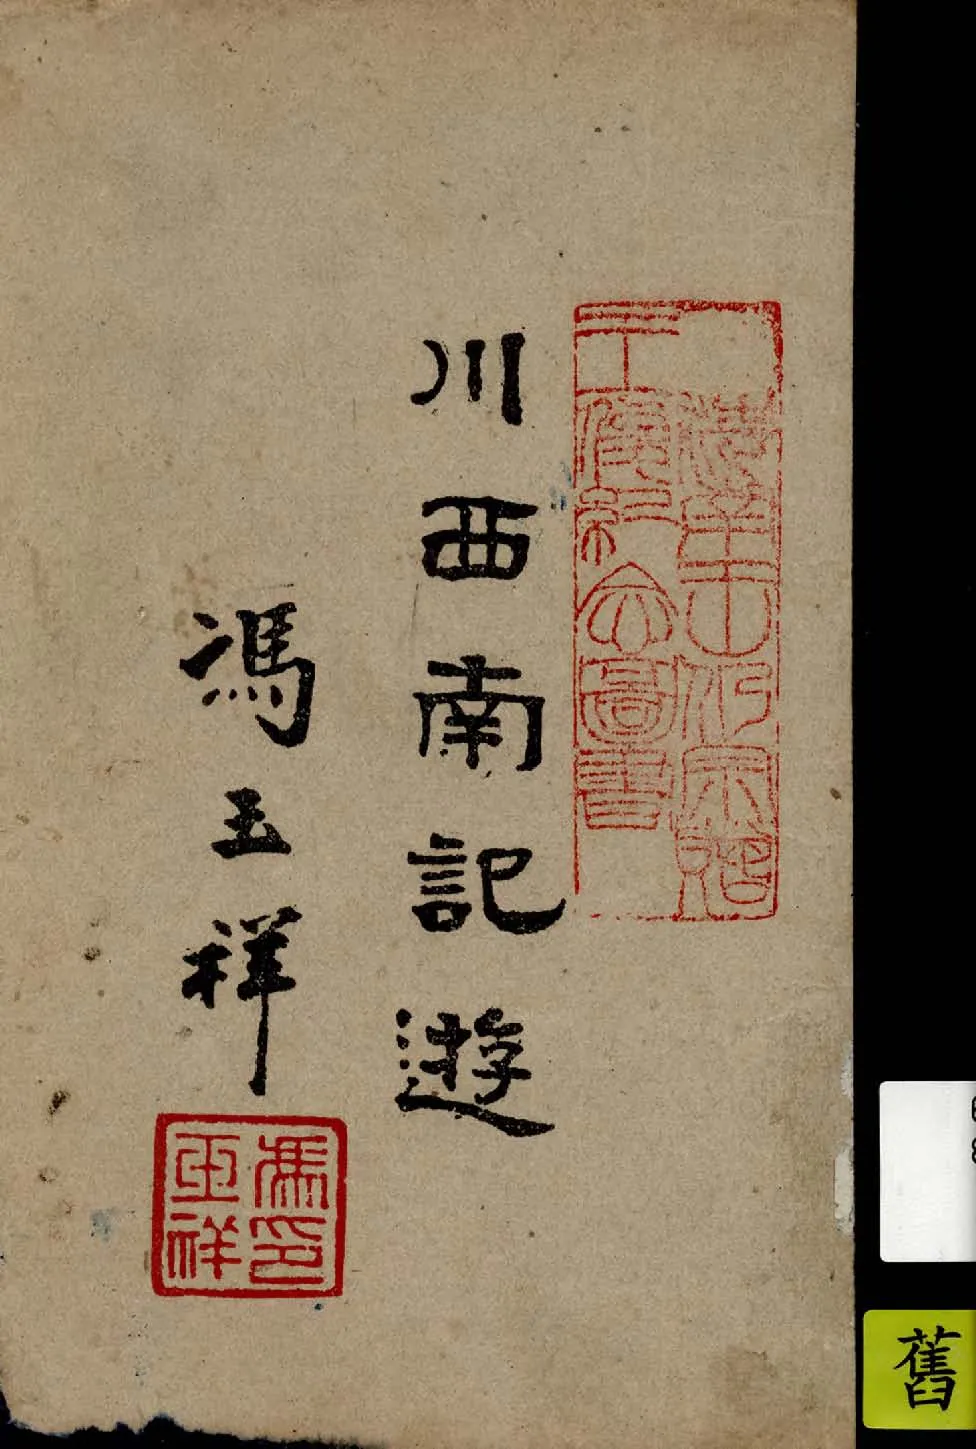 川西南記遊
馮玉祥
馮印
玉祥
舊